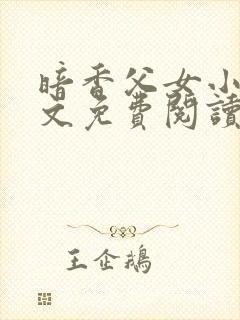 暗香父女小
文免費閱讀
王企鵝